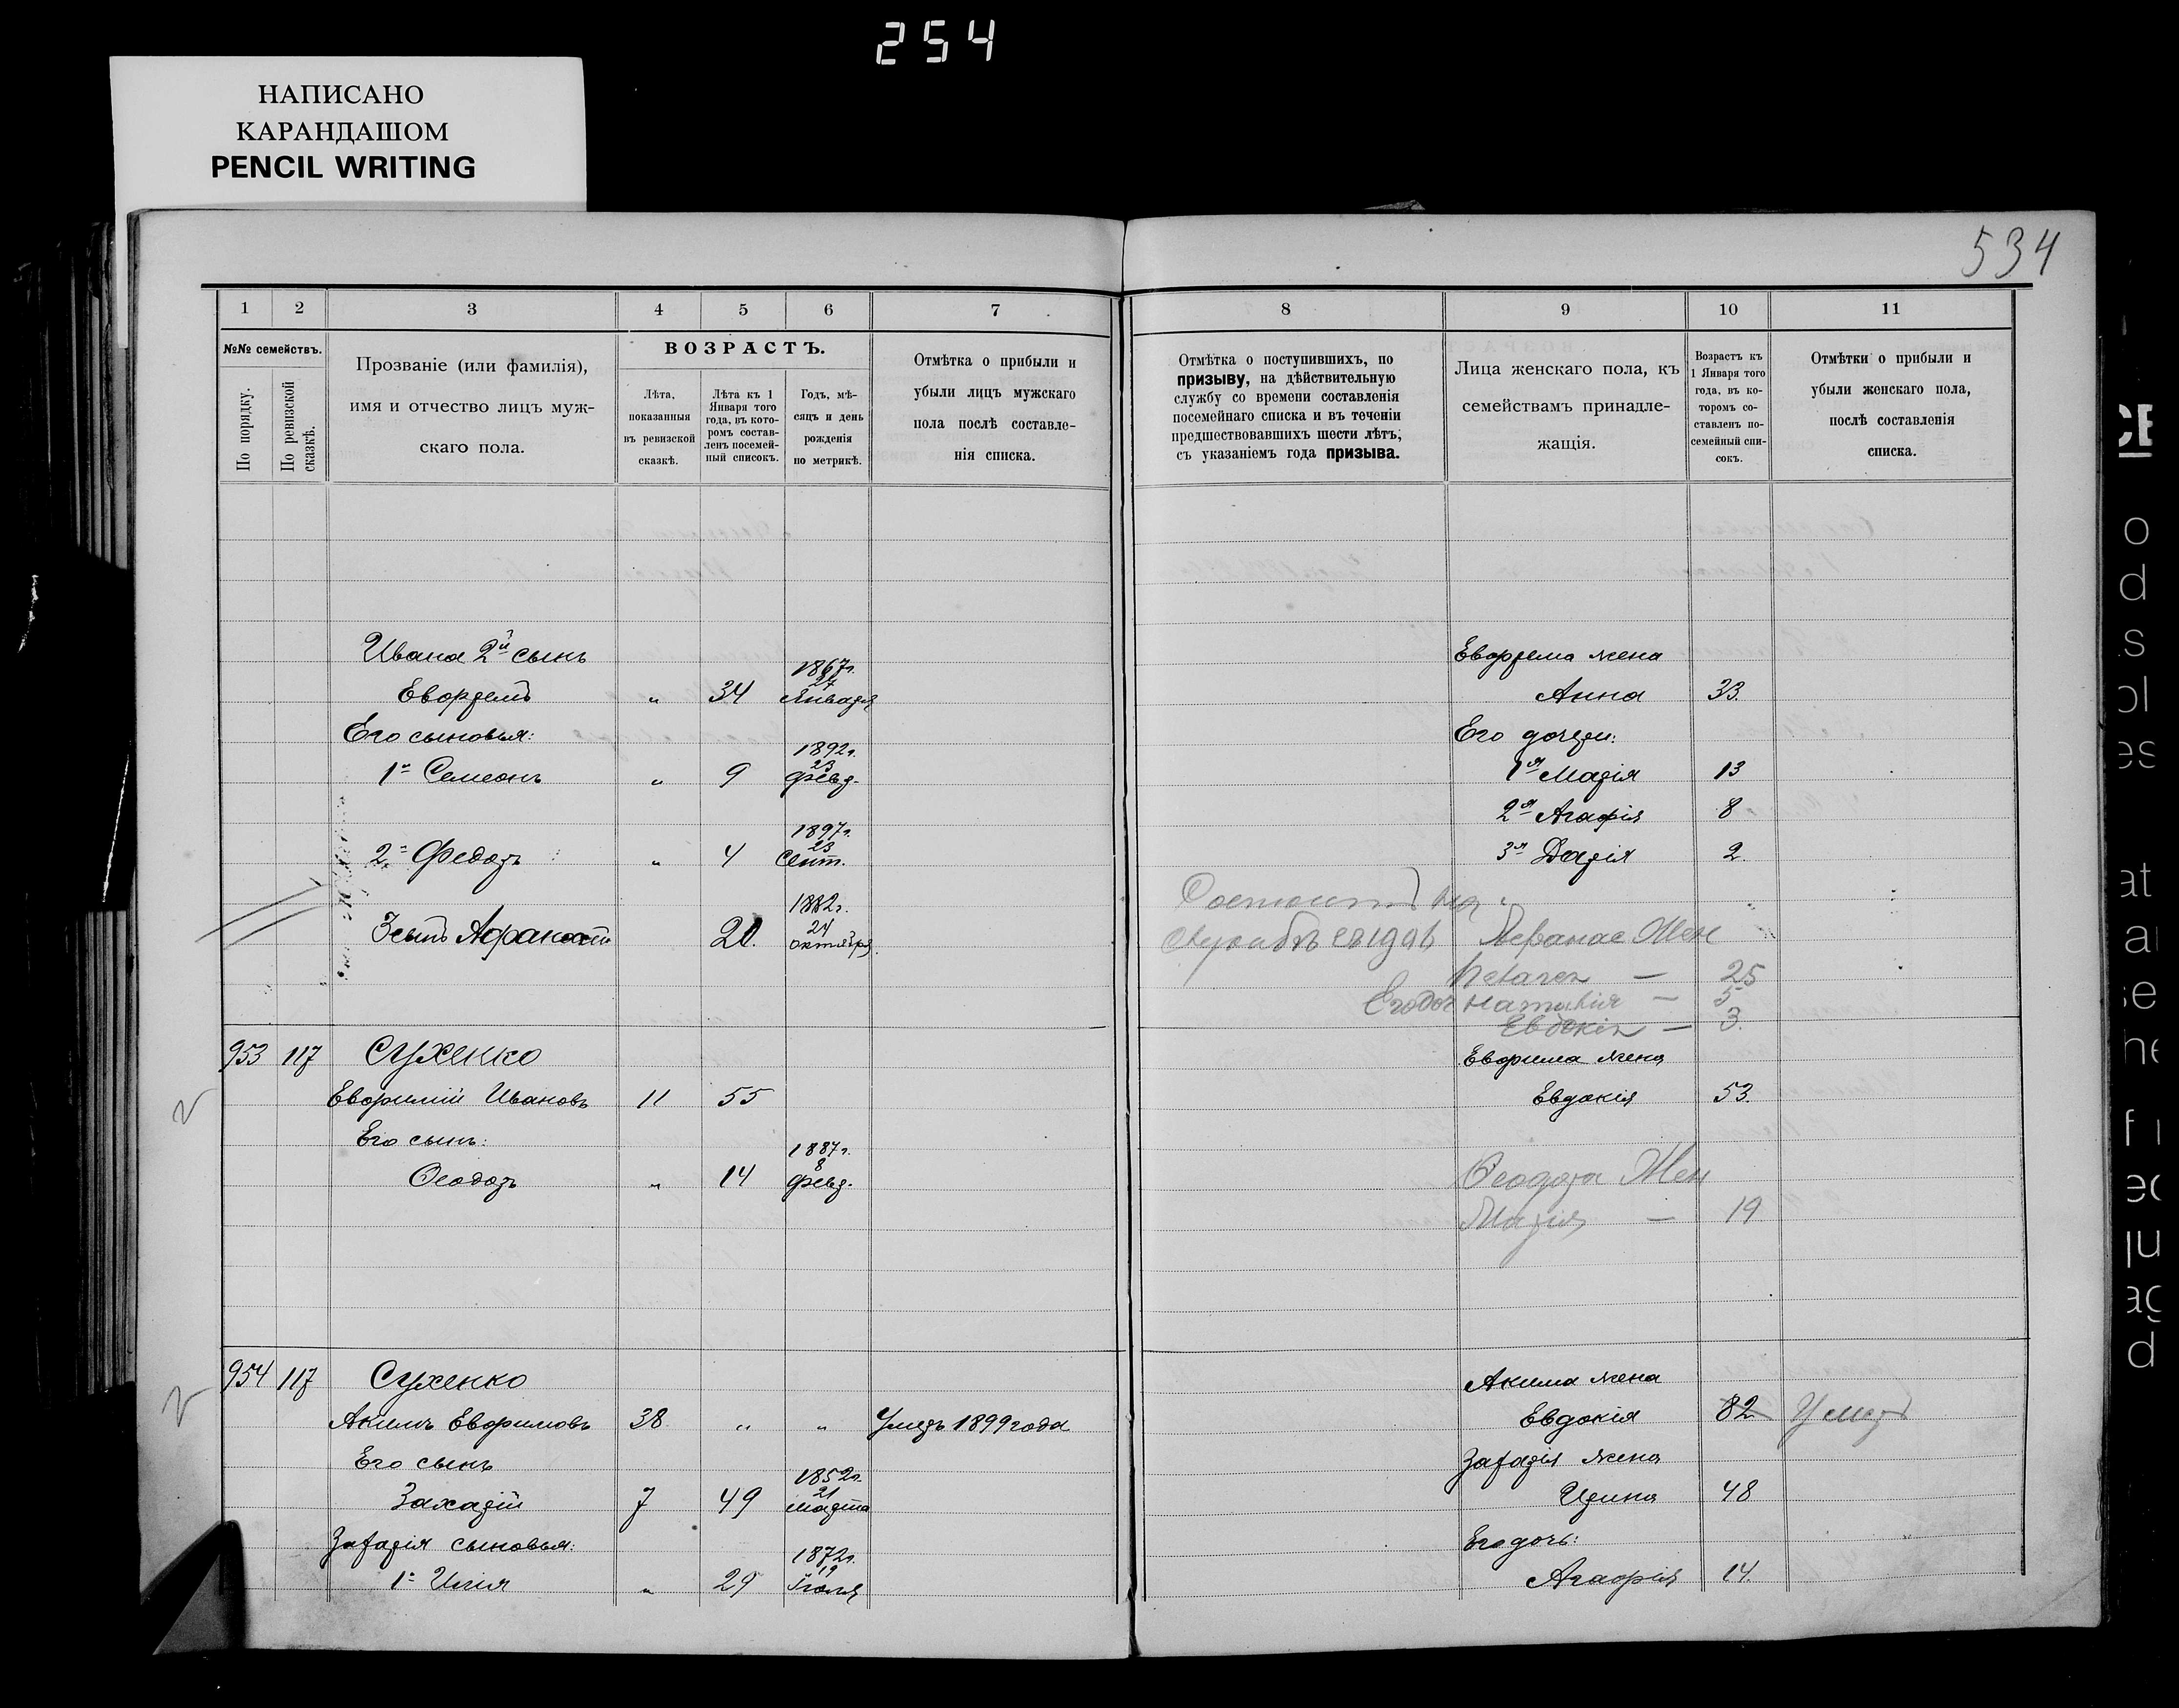 254
НАПИСАНО
КАРАНДАШОМ
PENCIL WRITING
534
1 2 3 4 5 6 7 8 9 10 11
№№ семействъ.
По порядку.
По ревизской сказкѣ.
Прозваніе (или фамилія),
имя и отчество лицъ муж-
скаго пола.
ВОЗРАСТЪ.
Лѣта,
показанныя
въ ревизской
сказкѣ.
Лѣта къ 1
Января того
года, въ кото-
ромъ состав-
ленъ посемей-
ный списокъ.
Годъ, мѣ-
сяцъ и день
рожденія
по метрикѣ.
Отмѣтка о прибыли и
убыли лицъ мужскаго
пола послѣ составле-
нія списка.
Отмѣтка о поступившихъ, по
призыву, на дѣйствительную
службу со времени составленія
посемейнаго списка и въ теченіи
предшествовавшихъ шести лѣтъ,
съ указаніемъ года призыва.
Лица женскаго пола, къ
семействамъ принадле-
жащія.
Возрастъ къ
1 Января того
года, въ ко-
торомъ со-
ставленъ по-
семейный спи-
сокъ.
Отмѣтки о прибыли и
убыли женскаго пола,
послѣ составленія
списка.
Ивана 2й сынъ Евфрема жена
Евфремъ " 34 1867г. 27 Января Анна 33.
Его сыновья: Его дочери:
1й Семеонъ " 9 1892г. 23 февр. 1я Марія 13
2я Агафія 8
2й Федоръ " 4 1897г. 23 Сент. 3я Дарія 2
Состоитъ на
3 сынъ Афанасій 20. 1882г. 24 октября службѣ съ 190 Афанас Жен
25
Его доч Наталія — 5
Евдокія — 3.
953 117 Сухенко Евфима жена
Евфимій Ивановъ 11 55 Евдокія 53.
Его сынъ:
Ѳеодоръ " 14 1887г. 8 февр. Ѳеодора Жен
Марія — 19
954 117 Сухенко Акима жена
Акимъ Евфимовъ 38 " " Умеръ 1899 года Евдокія 82 Умер
Его сынъ Захарія жена
Захарій 7 49 1852г. 21 марта Ирина 48
Захарія сыновья: Его дочь:
1й Илія " 29 1872г. 19 Іюля Агафія 14.